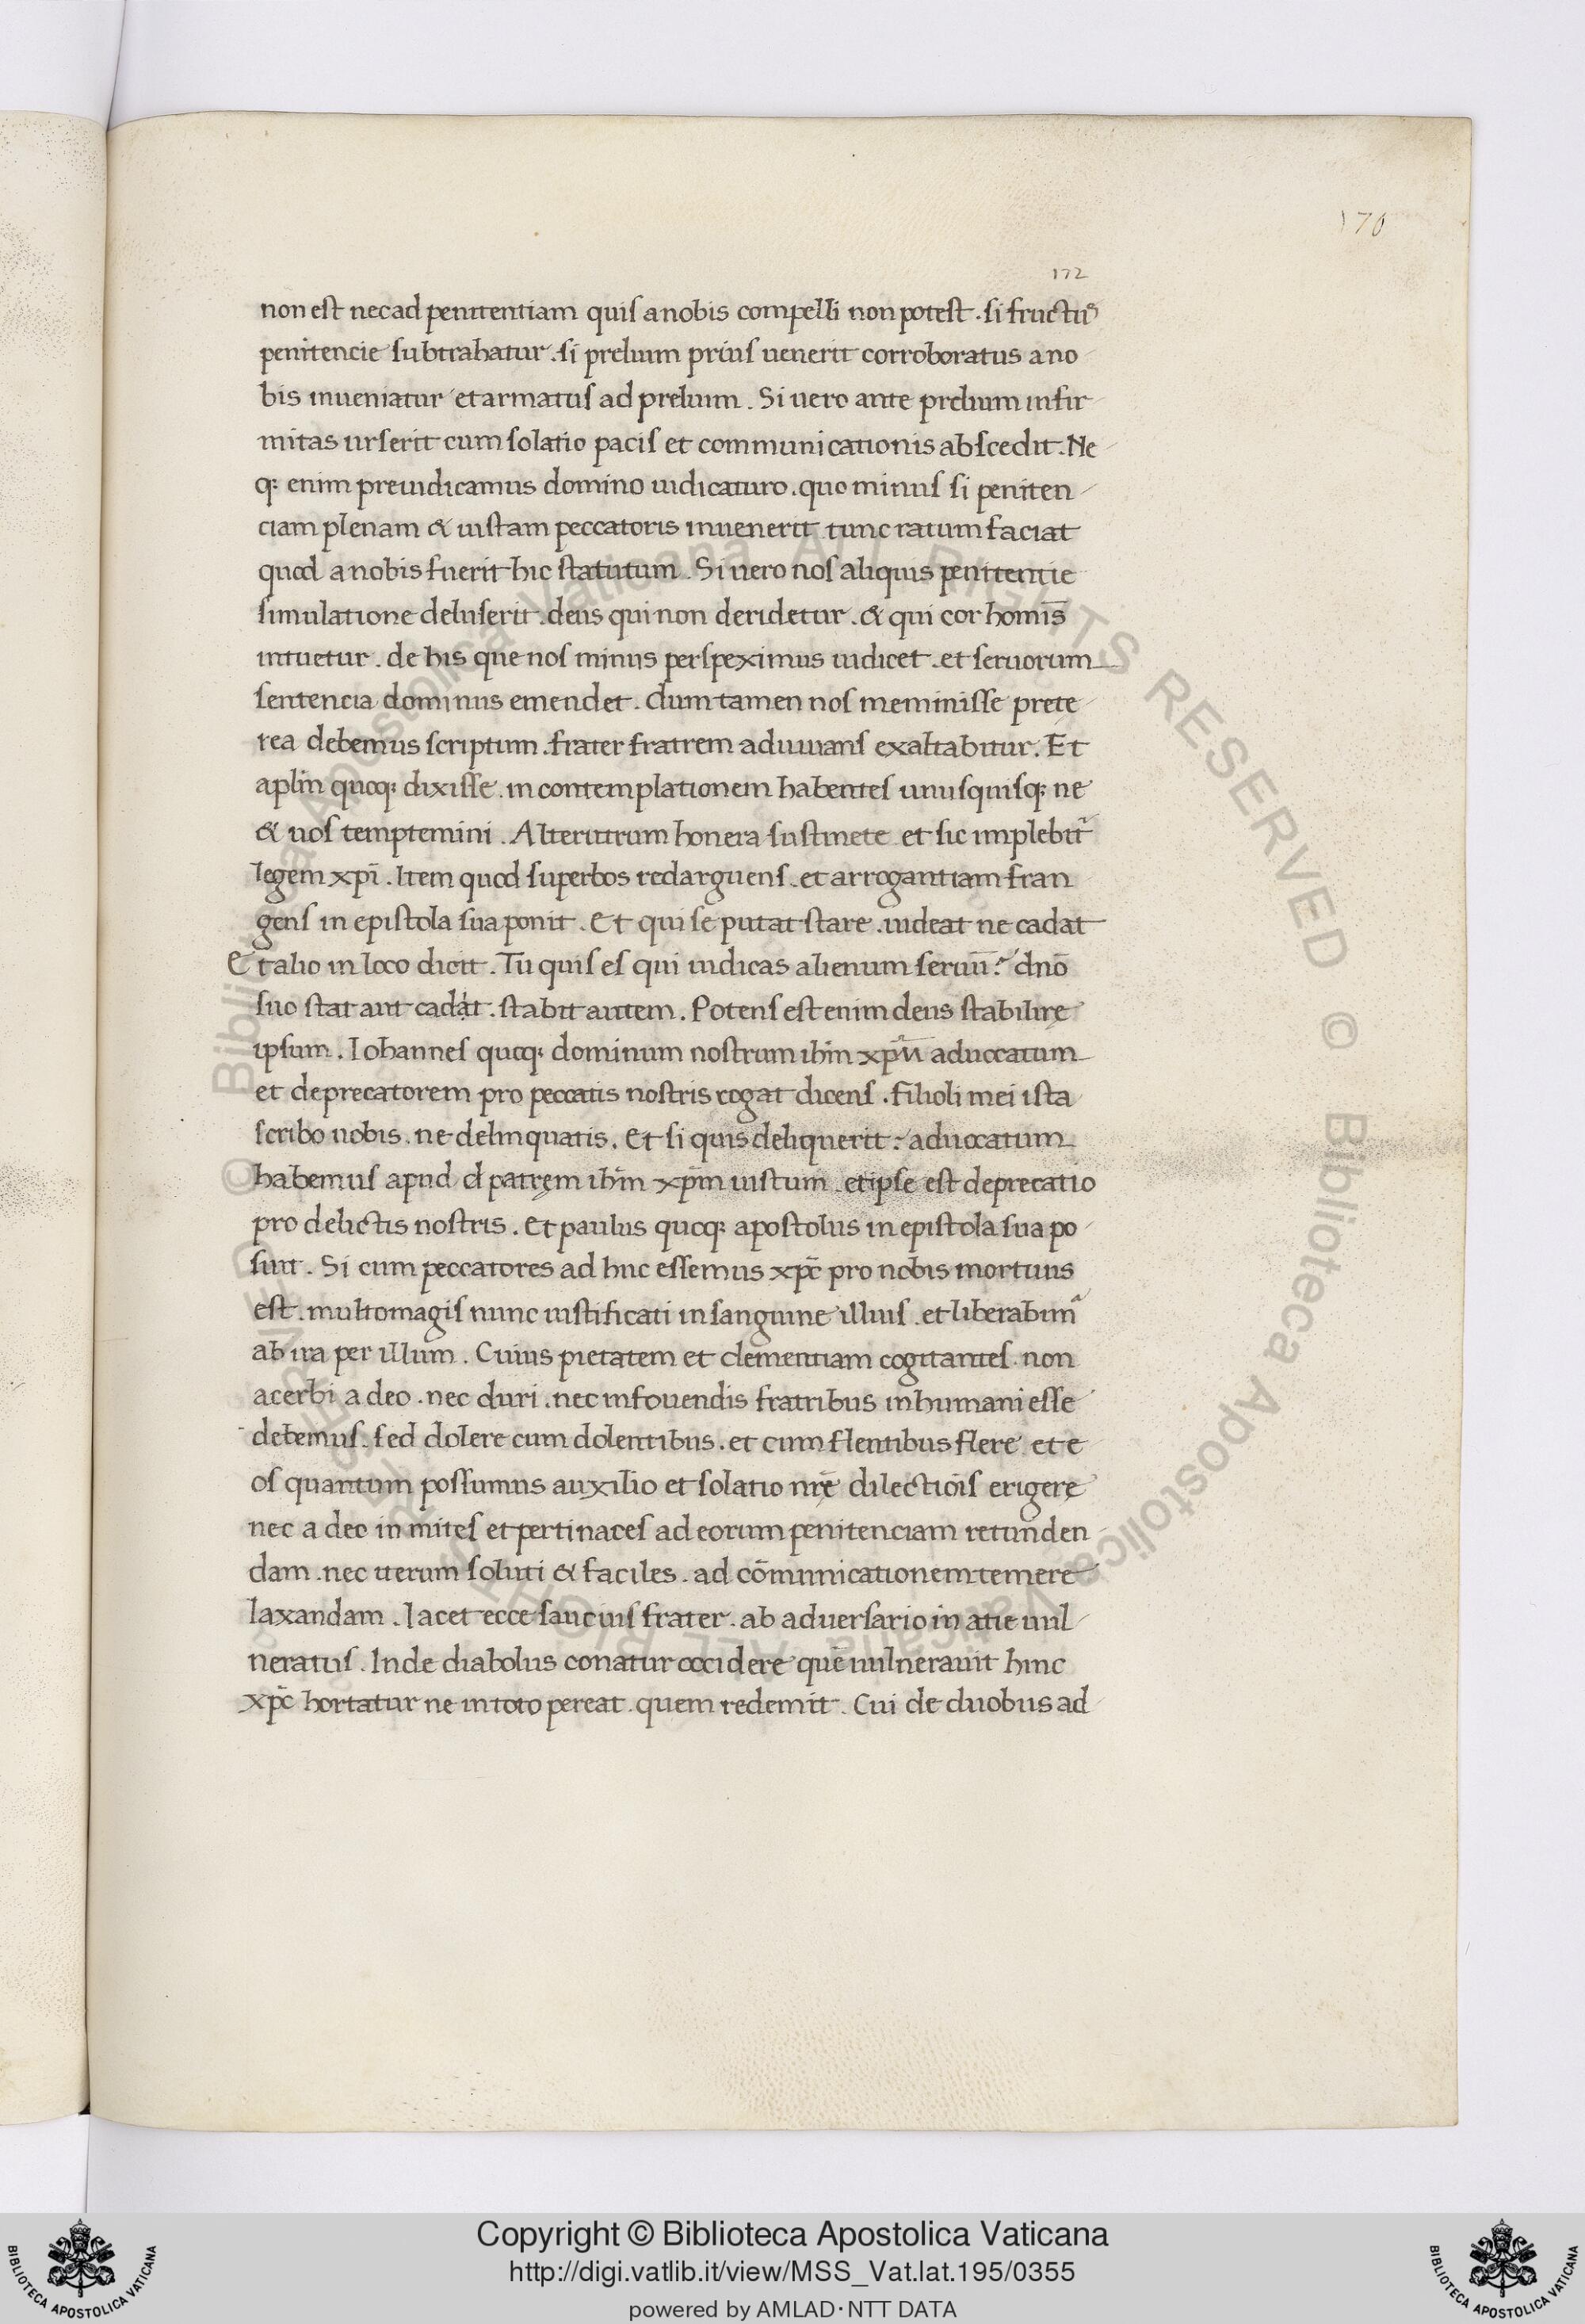 170
172
non est nec ad penitentiam quis a nobis compelli non potest . si fructus
penitencie subtrahatur . si prelium prius uenerit corroboratus a no
bis inueniatur et armatus ad prelium . Si uero ante prelium infir
mitas urserit cum solatio pacis et communicationis abscedit . Ne
q; enim preiudicamus domino iudicaturo . quo minus si peniten
ciam plenam & iustam peccatoris inuenerit tunc ratum faciat
quod a nobis fuerit hic statutum . Si uero nos aliquis penitentie
simulatione deluserit . deus qui non deridetur . & qui cor homīs
intuetur . de his que nos minus perspeximus iudicet . et seruorum
sentencia dominus emendet . dum tamen nos meminisse prete
rea debemus scriptum . frater fratrem adiuuans exaltabitur . Et
aplm̄ quoq; dixisse . in contemplationem habentes unusquisq; ne
& uos temptemini . Alterutrum honera sustinete et sic implebit᷑
legem xpī . Item quod superbos redarguens . et arrogantiam fran
gens in epistola sua ponit . Et qui se putat stare . uideat ne cadat
Et alio in loco dicit . Tu quis es qui iudicas alienum seruū ? dnō
suo stat aut cadat . stabit autem . Potens est enim deus stabilire
ipsum . Iohannes quoq; dominum nostrum ihm̄ xpm̄ aduocatum
et deprecatorem pro peccatis nostris rogat dicens . filioli mei ista
scribo uobis . ne delinquatis . Et si quis deliquerit : aduocatum
habemus apud d patręm ihm̄ xpm̄ iustum . et ipse est deprecatio
pro delictis nostris . Et paulus quoq; apostolus in epistola sua po
suit . Si cum peccatores ad huc essemus xpc̄ pro nobis mortuus
est . multo magis nunc iustificati in sanguine illius . et liberabim᷑
ab ira per illum . Cuius pietatem et clementiam cogitantes . non
acerbi adeo . nec duri . nec in fouendis fratribus inhumani esse
debemus . sed dolere cum dolentibus . et cum flentibus flere et e
os quantum possumus auxilio et solatio nrę̄ dilectiōis erigere
nec adeo in mites et pertinaces ad eorum penitenciam retunden
dam . nec iterum soluti & faciles . ad cōmunicationem temere
laxandam . Iacet ecce saucius frater . ab aduersario in atie uul
neratus . Inde diabolus conatur occidere quē uulnerauit hinc
xpc̄ hortatur ne in toto pereat . quem redemit . Cui de duobus ad
© Biblioteca Apostolica Vaticana ALL RIGHTS RESERVED © Biblioteca Apostolica Vaticana ALL RIGHTS RESERVED
BIBLIOTECA APOSTOLICA VATICANA
Copyright © Biblioteca Apostolica Vaticana
http://digi.vatlib.it/view/MSS_Vat.lat.195/0355
powered by AMLAD·NTT DATA
BIBLIOTECA APOSTOLICA VATICANA